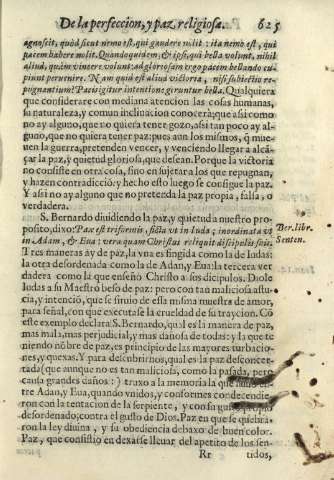 De la perfeccion, y paz religiosa. 625
agnoscit, quòd sicut nemo est, qui gaudere nolit: ita nemo est, qui
pacem habere nolit. Quandoquidem, & ipsi, qui bella volunt, nihil
aliud, quàm vincere volunt: ad gloriosam ergo pacem bellando cu-
piunt peruenire. Nam quid est aliud victoria, nisi subiectio re-
pugnantium? Pacis igitur intentione geruntur bella. Qualquiera
que considerare con mediana atencion las cosas humanas,
su naturaleza, y comun inclinacion conocerà; que assi como
no ay alguno, que no quiera tener gozo, assi tan poco ay al-
guno, que no quiera tener paz: pues aun los mismos, q̃ mue-
uen la guerra, pretenden vencer, y venciendo llegar a alcã-
çar la paz, y quietud gloriosa, que desean. Porque la victoria
no consiste en otra cosa, sino en sujetar a los que repugnan,
y hazen contradicciõ: y hecho esto luego se consigue la paz.
Y assi no ay alguno que no pretenda la paz propia, falsa, o
verdadera.
S. Bernardo diuidiendo la paz, y quietud a nuestro pro-
posito, dixo: Pax est triformis, ficta vt in Iuda; inordinata vt
in Adam, & Eua: vera quam Christus reliquit discipulis suis.
Ber. libr.
Senten.
Tres maneras ay de paz, la vna es fingida como la de Iudas:
la otra desordenada como la de Adan, y Eua: la tercera ver-
dadera como la que enseñò Christo a los dicipulos. Diole
Iudas a su Maestro beso de paz: pero con tan maliciosa astu-
cia, y intenciõ, que se siruio de essa misma muestra de amor,
para señal, con que executasse la crueldad de su traycion. Cõ
este exemplo declara S. Bernardo, qual es la manera de paz,
mas mala, mas perjudicial, y mas dañosa de todas: y la que te
niendo nõbre de paz, es principio de las mayores turbacio-
nes, y quexas. Y para descubrirnos, qual es la paz desconcer-
tada (que aunque no es tan maliciosa, como la passada, pero
causa grandes daños:) traxo a la memoria la que
tre Adan, y Eua, quando vnidos, y conformes condecendie-
ron con la tentacion de la serpiente, y con su gusto
desordenado, contra el gusto de Dios. Paz en que se quieta-
ron la ley diuina, y su obediencia debaxo de buen color.
Paz, que consistio en dexarse lleuar del apetito de los sen-
Rr tidos,